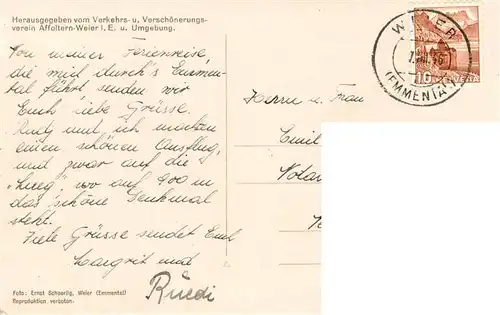 Herausgegeben vom Verkehrs- u. Verschönerungs-
verein Affoltern-Weier i. E. u. Umgebung.
Von meiner Ferienreise,
die mich durch's Emmen-
tal führt senden wir
Euch liebe Grüsse.
und ich machten
einen schönen Ausflug,
und zwar auf die
"Lueg", wo auf 900 m
das schöne Denkmal
steht.
Viele Grüsse sendet Euch
Margrit und
Ruedi
Foto: Ernst Schaerlig, Weier (Emmental)
Reproduktion verboten.
WEIER
(EMMENTAL)
10
HELVETIA
Herrn u. Frau
Emil
Notar